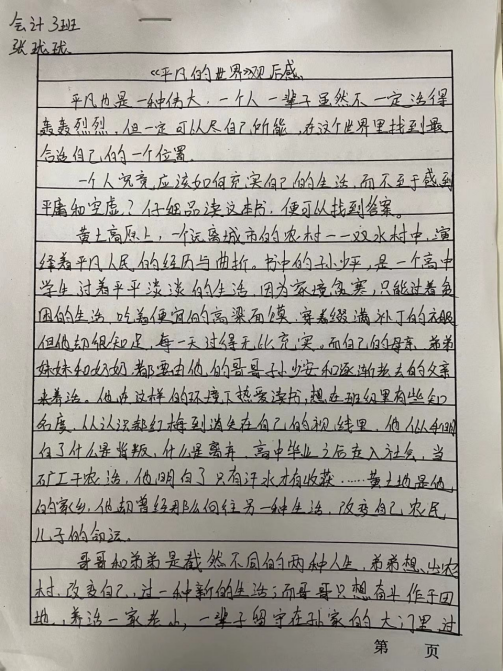 会计3班
张球球
《平凡的世界》观后感
平凡也是一种伟大，一个人一辈子虽然不一定活得
轰轰烈烈，但一定可以尽自己所能，在这个世界里找到最
合适自己的一个位置。
一个人究竟应该如何充实自己的生活，而不至于感到
平庸和空虚？仔细品读这本书，便可以找到答案。
黄土高原上，一个远离城市的农村——双水村中，演
绎着平凡人民的经历与曲折。书中的孙少平，是一个高中
学生，过着平平淡淡的生活，因为家境贫寒，只能过着贫
困的生活，吃着便宜的高梁面馍，穿着缀满补丁的衣服
但他却很知足，每一天过得无比充实。而自己的母亲、弟弟
妹妹和奶奶都要由他的哥哥孙少安和逐渐老去的父亲
来养活。他在这样的环境下热爱读书，想在班级里有些知
名度，从认识郝红梅到消失在自己的视线里，他从中明
白了什么是背叛，什么是离弃，高中毕业之后走入社会，当
矿工干农活，他明白了只有汗水才有收获……黄土地是他
的家乡，他却曾经那么向往另一种生活，改变自己农民
儿子的命运。
哥哥和弟弟是截然不同的两种人生，弟弟想出农
村，改变自己，过一种新的生活；而哥哥只想有半作于田
地，养活一家老小，一辈子留守在孙家的大门里，过
第 页